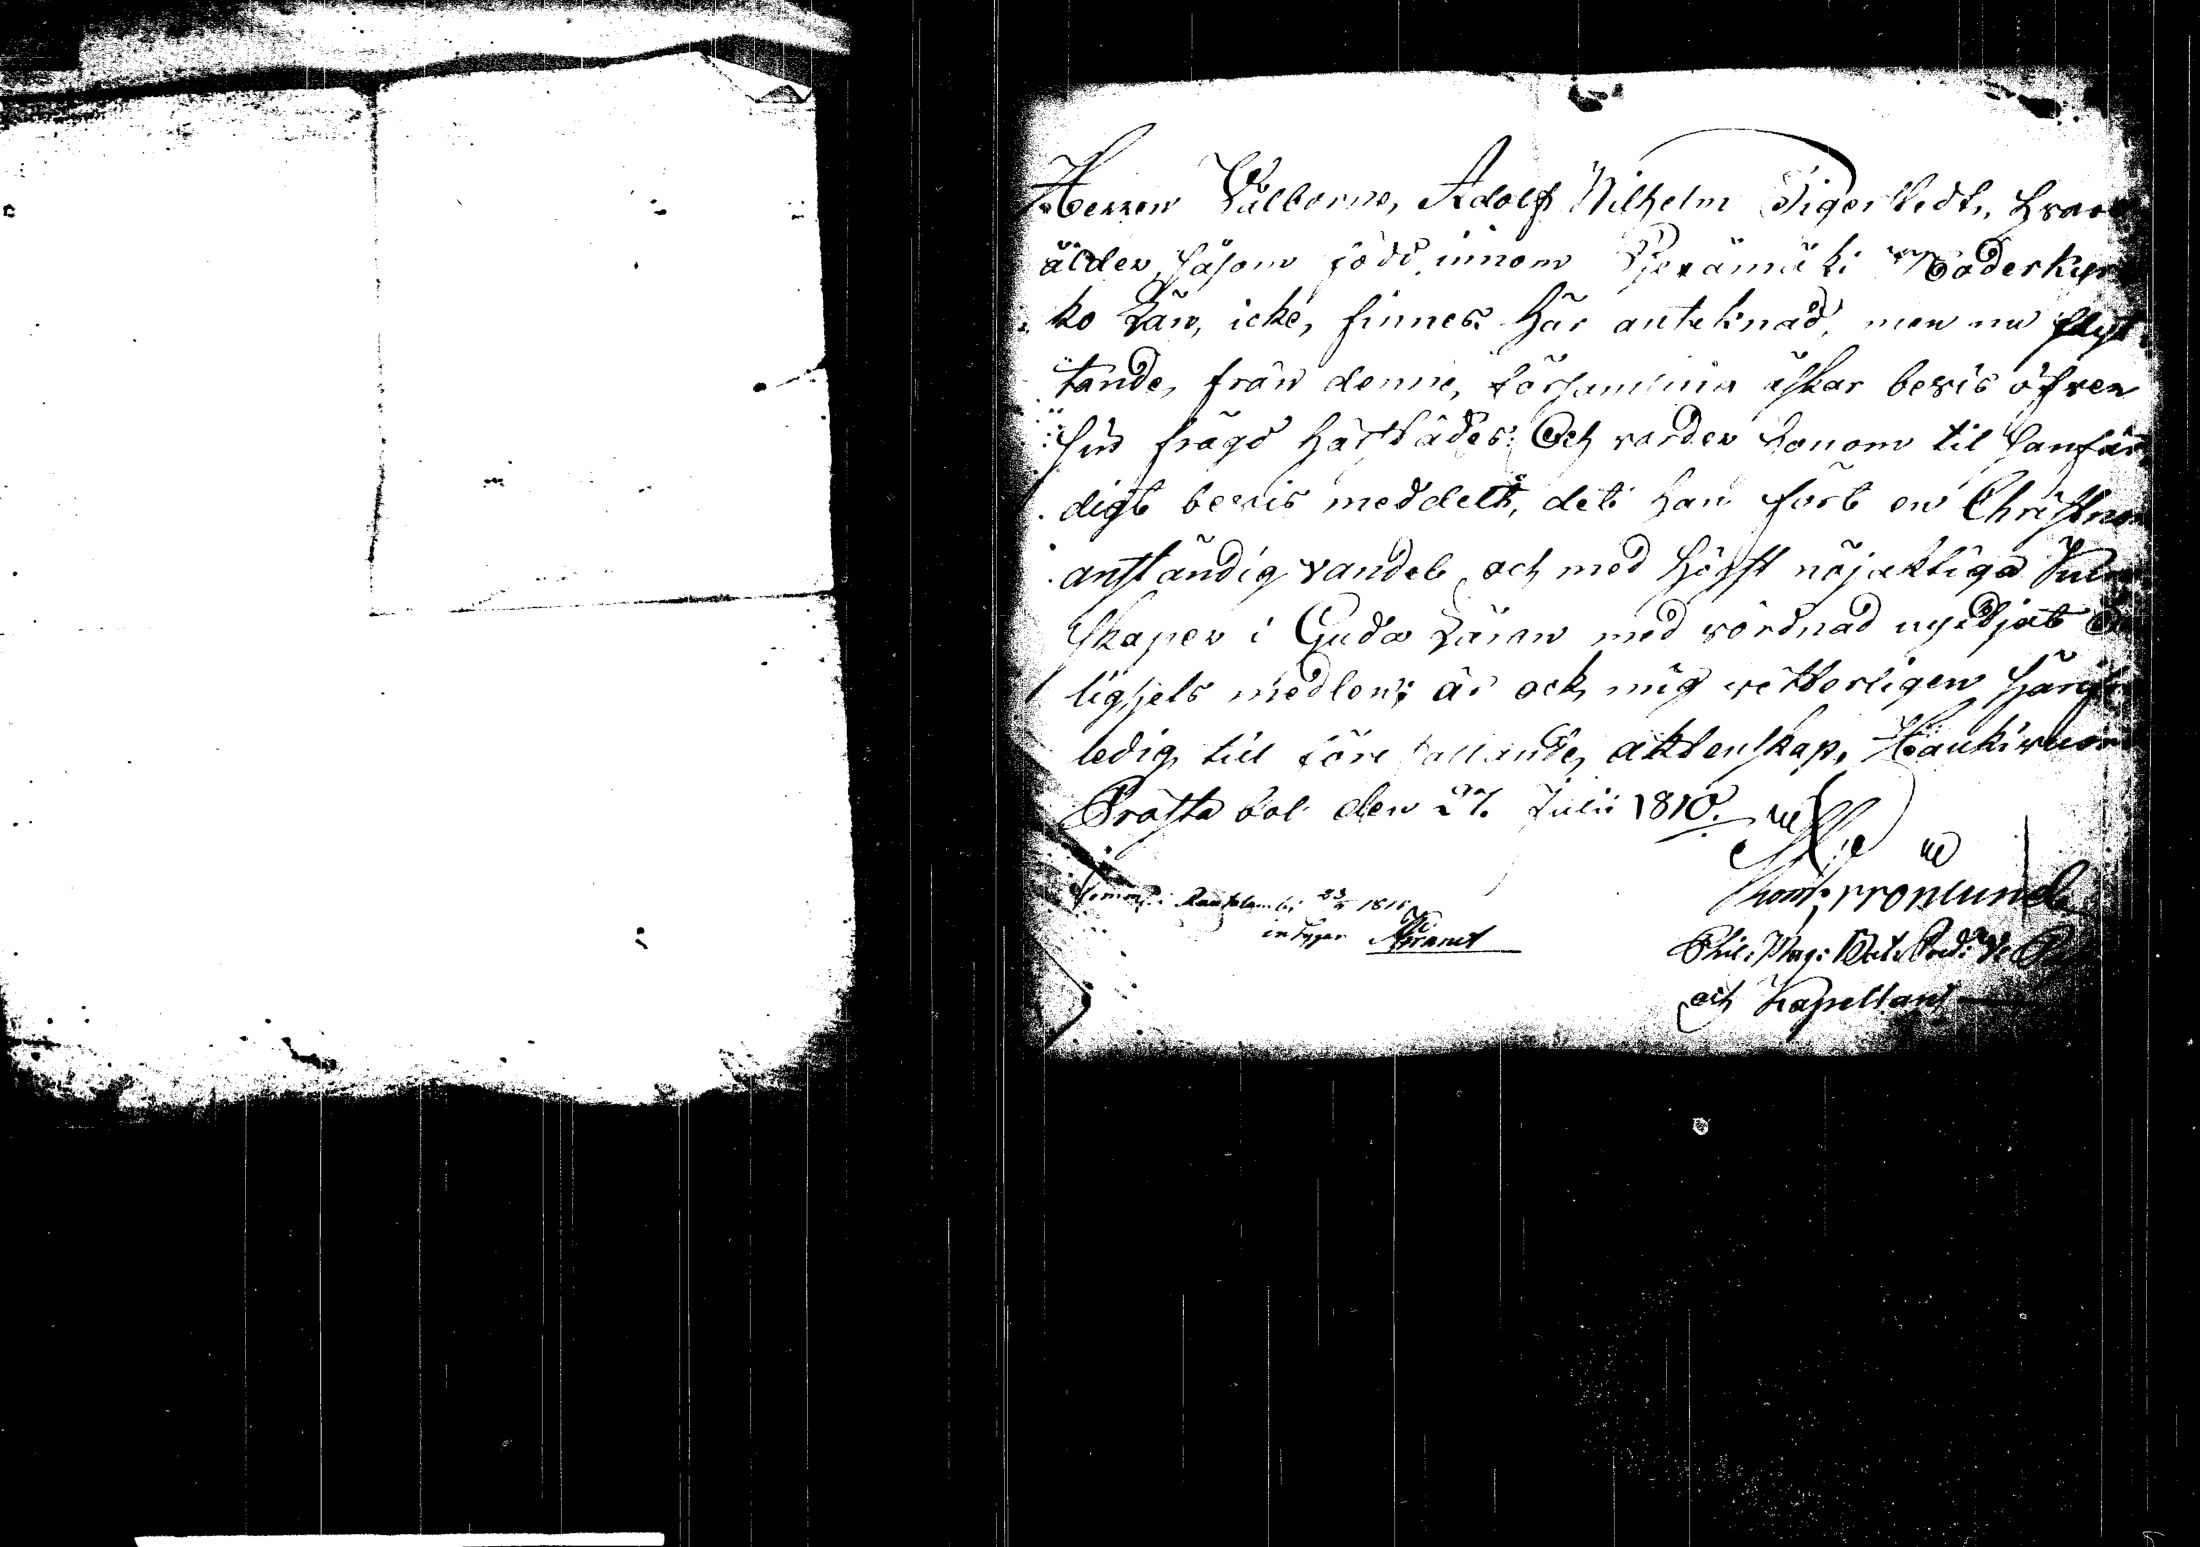 Herren Välborne, Adolf Wilhelm Tigerstedt, hvars
ålder, såsom född innom Pjexämäki Moderkyr
ko Län, icke, finnes här anteknad, men nu flyt
tande, från denne, församling äskar bevis öfver
sin frägd härstädes: Och varder honom til sanfär
digt bevis meddelt, det han fört en Christna
anständig vandel och med högst nöjaktiga Kun
skaper i Guda Läran med vördnad
medlen; är ock mig vetterligen
ledig till äktenskap, Haukivuori
Prästa bol den 27. Julii 1810.
Rautalambi 1810
intygar
Phil: Mag:
och Kapellan